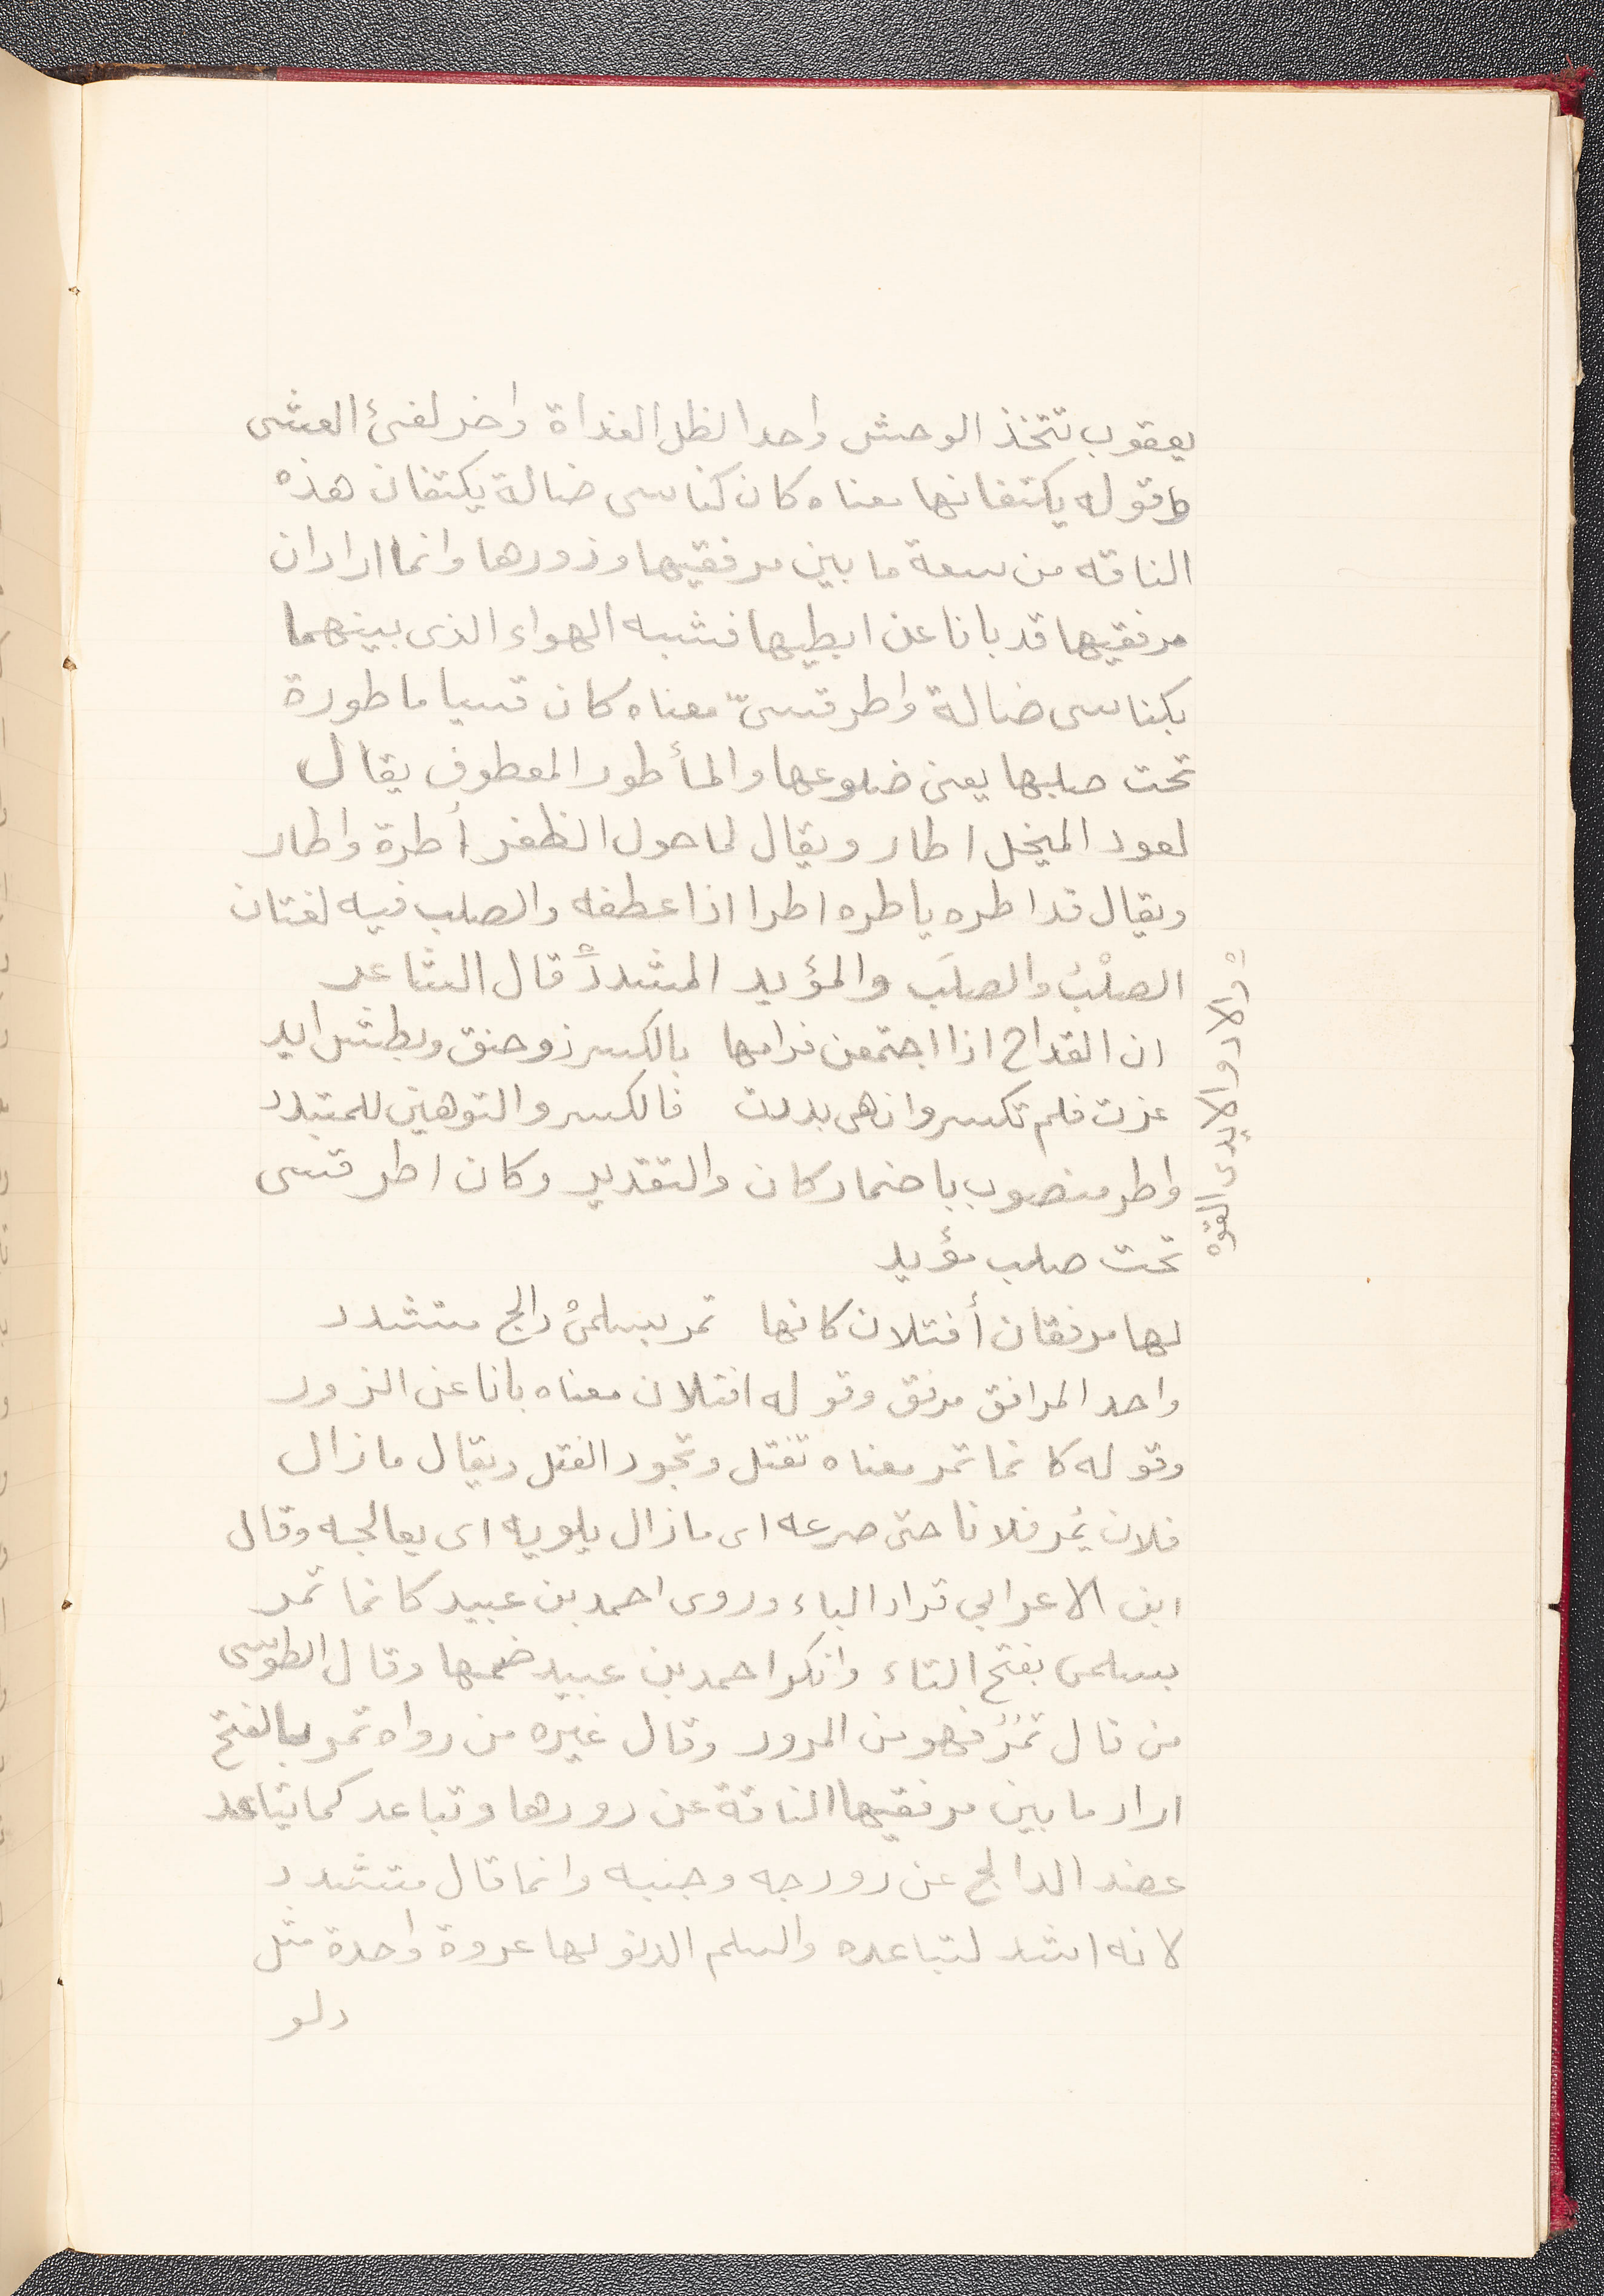 يعقوب تتخذ الوحش واحدا لظل الغداة واخر لفئ العشى
وقوله يكنفانها معناه كان كناسى ضالة يكنفان هذه
الناقه من سعة ما بين مرفقيها وزورها وانما اراد ان
مرفقيها قد بانا عن ابطيها فشبه الهواء الذى بينهما
بكناسى ضالة واطر قسىّ معناه كان قسيا ماطورة
تحت صلبها يعنى ضلوعها والمأطور المعطوف يقال
لعود المنخل اطار ويقال لما حول الظفر أطرة واطار
ويقال قد اطره ياطره اطرا اذا عطفه والصلب فيه لغتان
الصلْبُ والصلَب والمؤيد المشدد قال الشاعر
ان القداح اذا اجتمعن فرامها بالكسر ذو حنق وبطش ايد
عزت فلم تكسر وان هى بددت فالكسر والتوهين للمتبدد
واطر منصوب باضمار كان والتقدير وكان اطر قسى
تحت صلب مؤيد
لها مرفقان أفتلان كانها تمر بسلمىْ دالج متشدد
واحد المرافق مرفق وقوله افتلان معناه بانا عن الزور
وقوله كانما تمر معناه تفتل وتجود الفتل ويقال مازال
فلان يُمر فلانا حتى صرعه اى مازال يلويه اى يعالجه وقال
ابن الاعرابي تراد الباء وروى احمد بن عبيد كانما تمر
بسلمى بفتح التاء وانكر احمد بن عبيد ضمها وقال الطوسى
من قال تَمُرُّ فهو من المرور وقال غيره من رواه تمر بالفتح
اراد ما بين مرفقيها الناقة عن رورها وتباعد كما يتباعد
عضد الدالج عن رورجه وجنبه وانما قال متشدد
لانه اشد لتباعده والسلم الدلو لها عروة واحدة مثل
دلو
والاد والايدى القوه